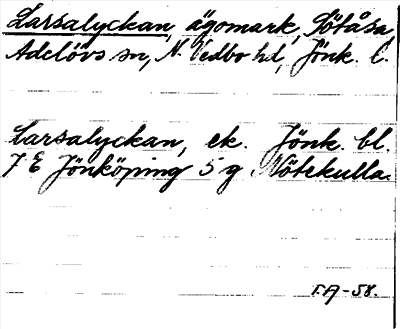 Larsalyckan, ägomark, Götåsa,
Adelövs sn, N. Vedbo hd, Jönk. l.
Larsalyckan, ek. Jönk. bl.
7 E Jönköping 5 g Nötekulla.
I.A-58.